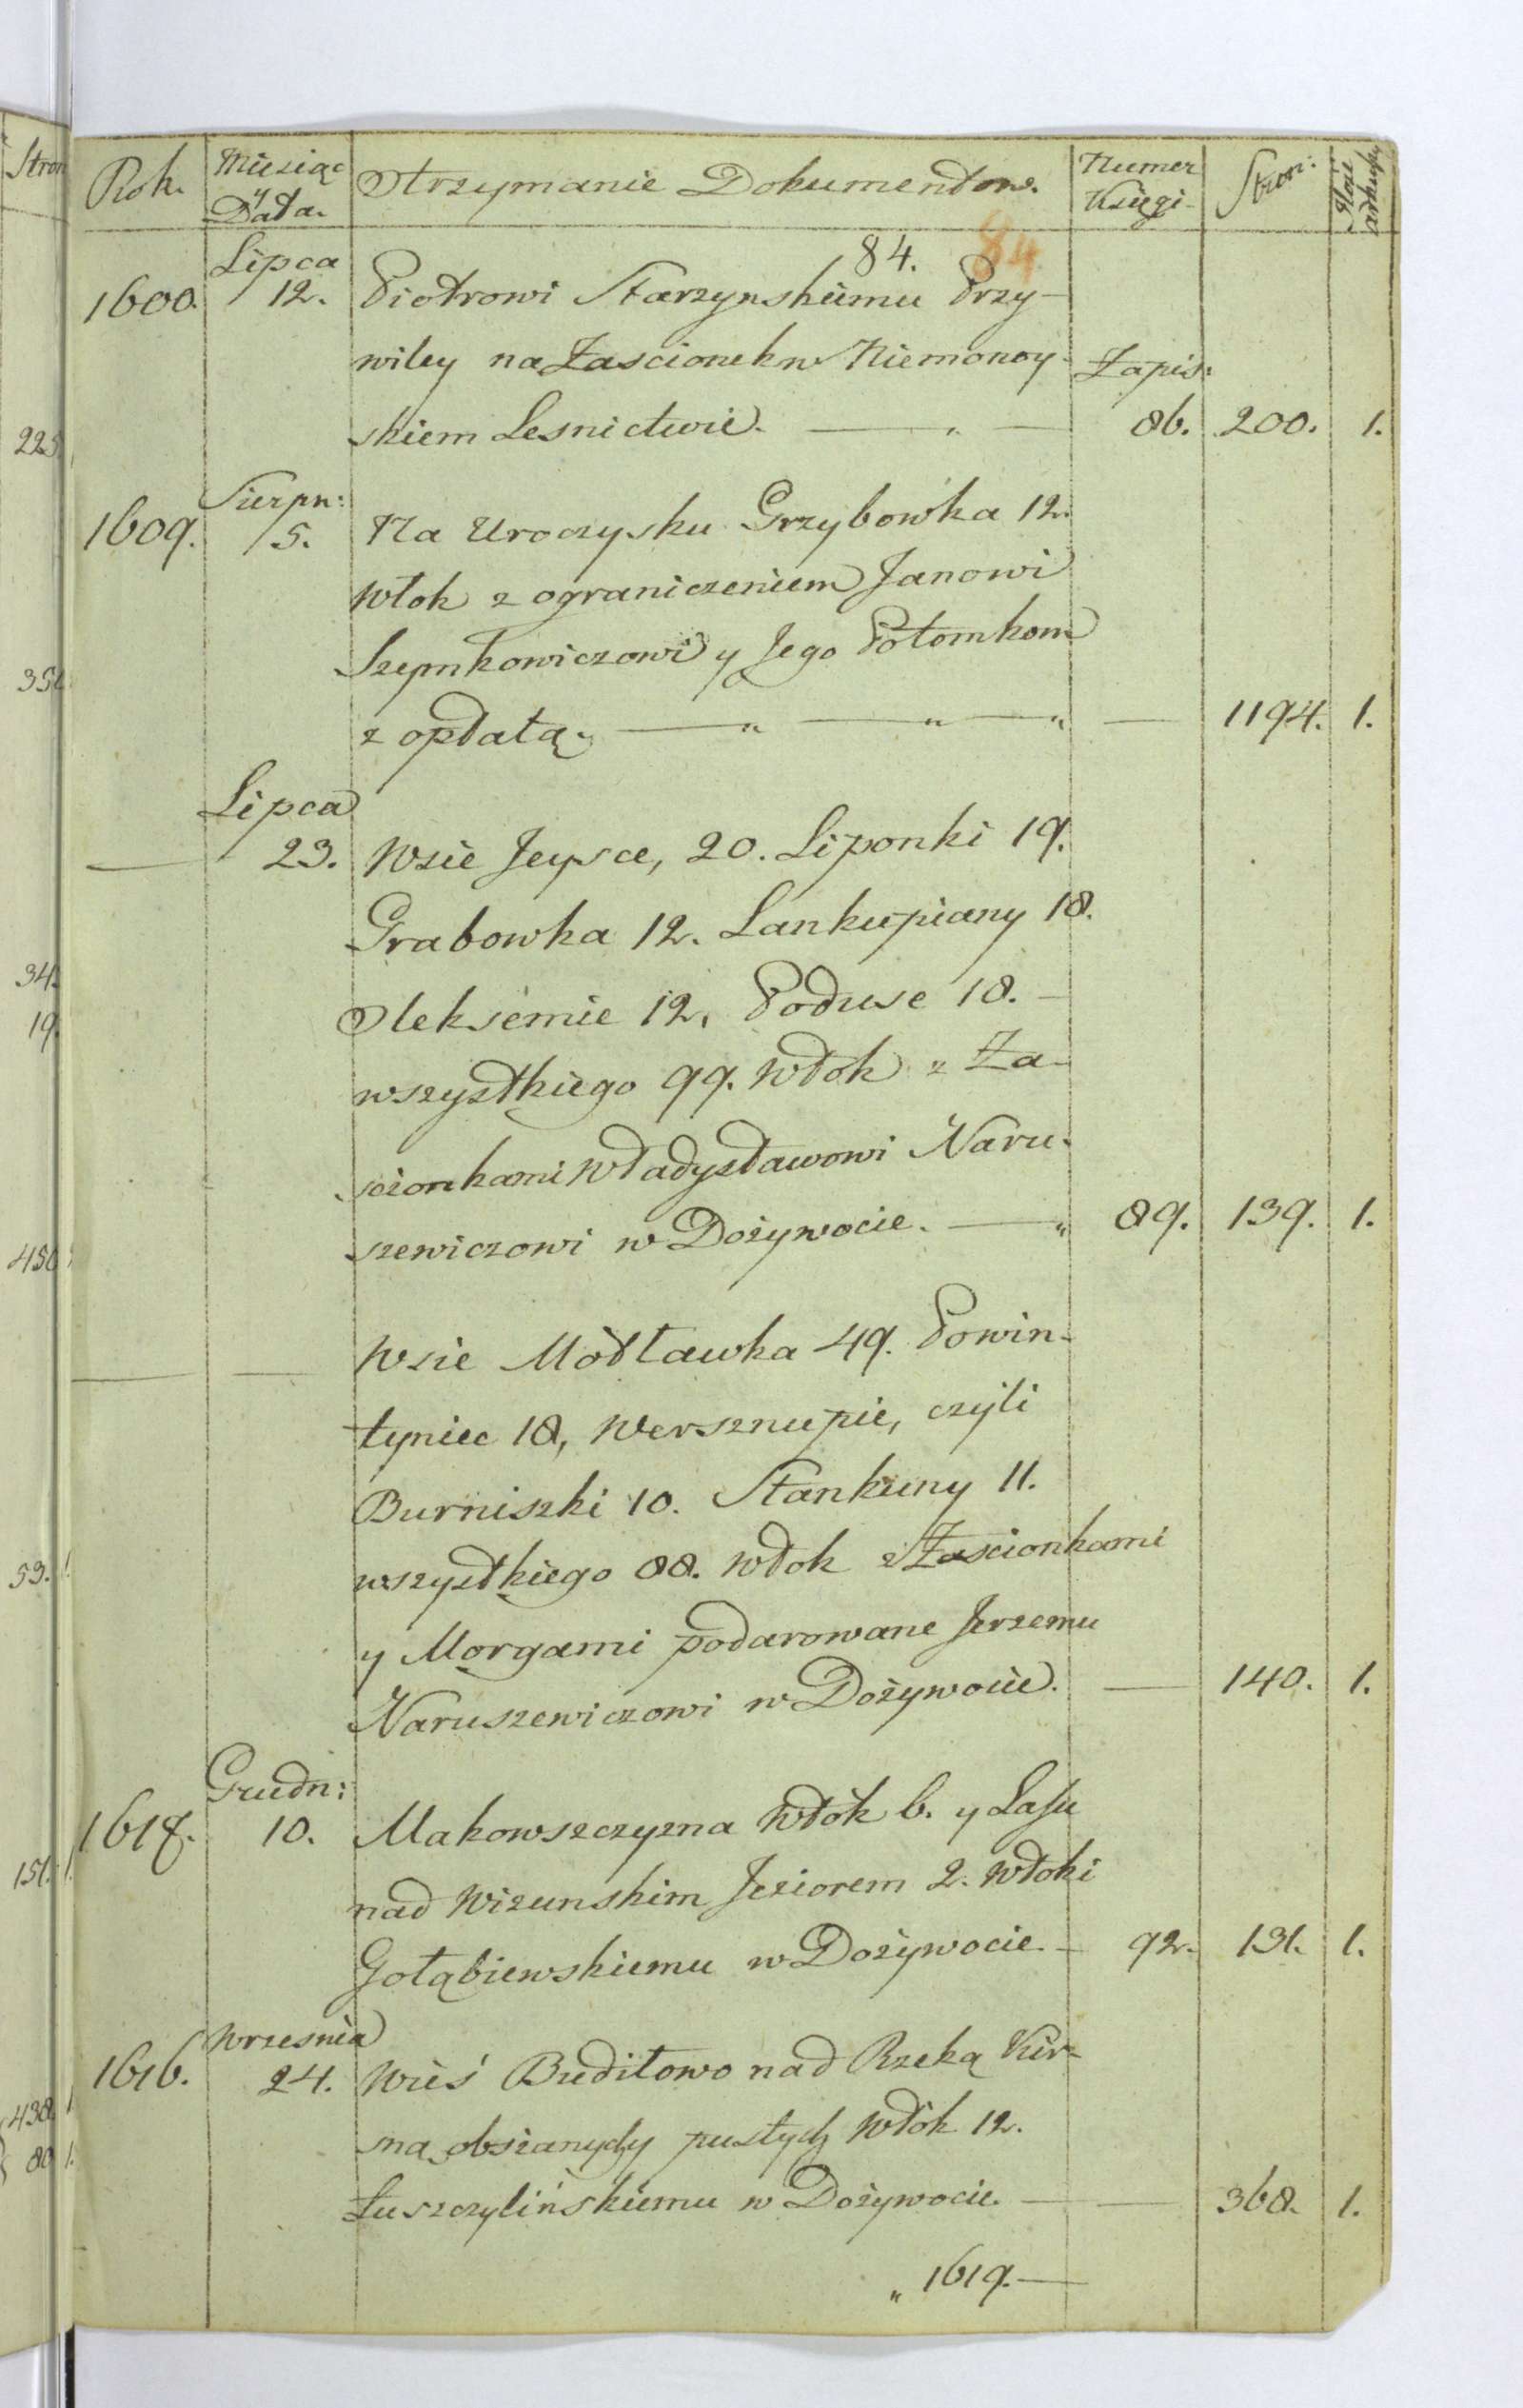 Rok. Miesiąc y Data. Otrzymanie Dokumentow. Numer Księgi. Stron: Ilość
84. 84
1600. Lipca 12. Piotrowi Starzynskiemu Przy-
wiley na Zascionek w Niemonoy- Zapis:
skiem Lesnictwie. 86. 200. 1.
1609. Sierpn: 5. Na Uroczysku Grzybowka 12.
Włok z ograniczeniem Janowi
Szepnkowiczowi y Jego Potomkom
z opłatą. 1194. 1.
Lipca
— 23. Wsie Jeysce, 20. Liponki 19.
Grabowka 12. Lankupiany 18.
Oleksemie 12, Poduse 18. –
wszystkiego 99. Włok z Za-
scionkami Władysławowi Naru-
szewiczowi w Dożywocie. 89. 139. 1.
— — Wsie Módławka 49. Powin-
tyniec 18, Wersznupie, czyli
Burniszki 10. Stankuny 11.
wszystkiego 88. Włok z Zascionkami
y Morgami podarowane Jerzemu
Naruszewiczowi w Dożywocie. — 140. 1.
Grudn: 10. Makowszczyzna Włok 6. y Lasu
nad Wizunskim Jeziorem 2. Włoki
Gołąbiewskiemu w Dożywocie. – 92. 131. 1.
1616. Wrzesnia 24. Wieś Budiłowo nad Rzeką Kir-
sna obsianych pustych Włok 12.
Łuszczylińskiemu w Dożywocie. — 368. 1.
„ 1619. —